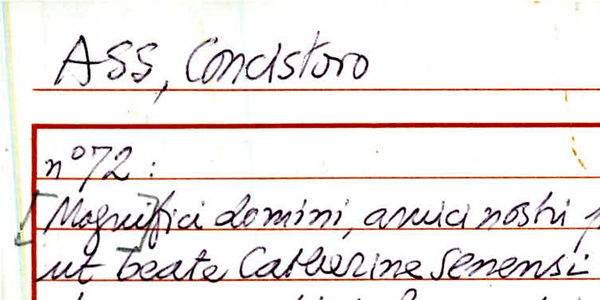 ASS, Concistoro
n° 72 :
[Magni]fici domini, amici nostri
ut beate Catherine Senensi